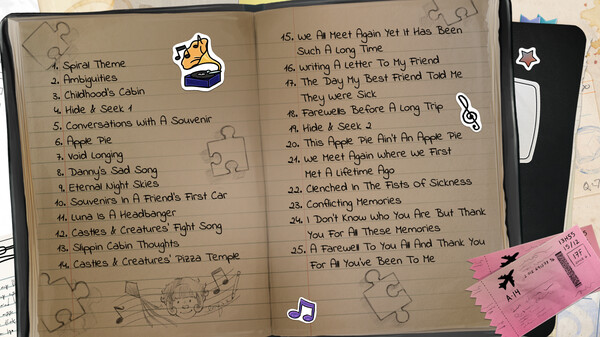 1. Spiral Theme
2. Ambiguities
3. Childhood's Cabin
4. Hide & Seek 1
5. Conversations With A Souvenir
6. Apple Pie
7. Void Longing
8. Danny's Sad Song
9. Eternal Night Skies
10. Souvenirs In A Friend's First Car
11. Luna Is A Headbanger
12. Castles & Creatures' Fight Song
13. Slippin Cabin Thoughts
14. Castles & Creatures' Pizza Temple
15. We All Meet Again Yet It Has Been
Such A Long Time
16. Writing A Letter To My Friend
17. The Day My Best Friend Told Me
They Were Sick
18. Farewells Before A Long Trip
19. Hide & Seek 2
20. This Apple Pie Ain't An Apple Pie
21. We Meet Again Where We First
Met A Lifetime Ago
22. Clenched In The Fists Of Sickness
23. Conflicting Memories
24. I Don't Know Who You Are But Thank
You For All These Memories
25. A Farewell To You All And Thank You
For All You've Been To Me
13H55
15/12
17F
A14